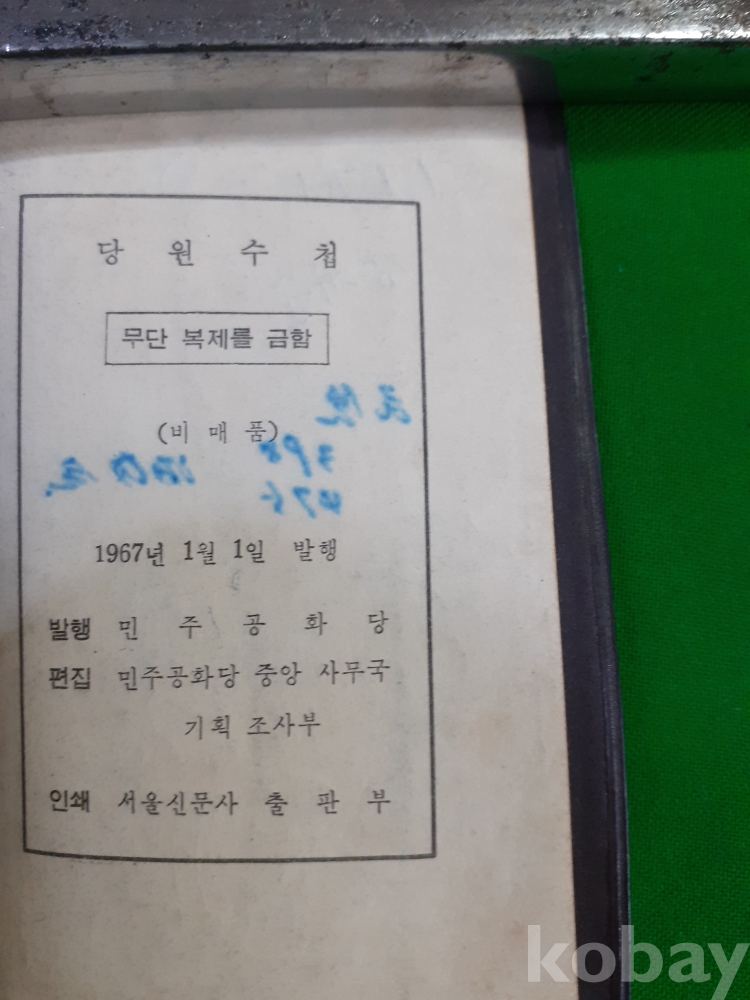 당원수첩
무단 복제를 금함
(비매품)
1967년 1월 1일 발행
발행 민주공화당
편집 민주공화당 중앙 사무국
기획 조사부
인쇄 서울신문사 출판부
kobay